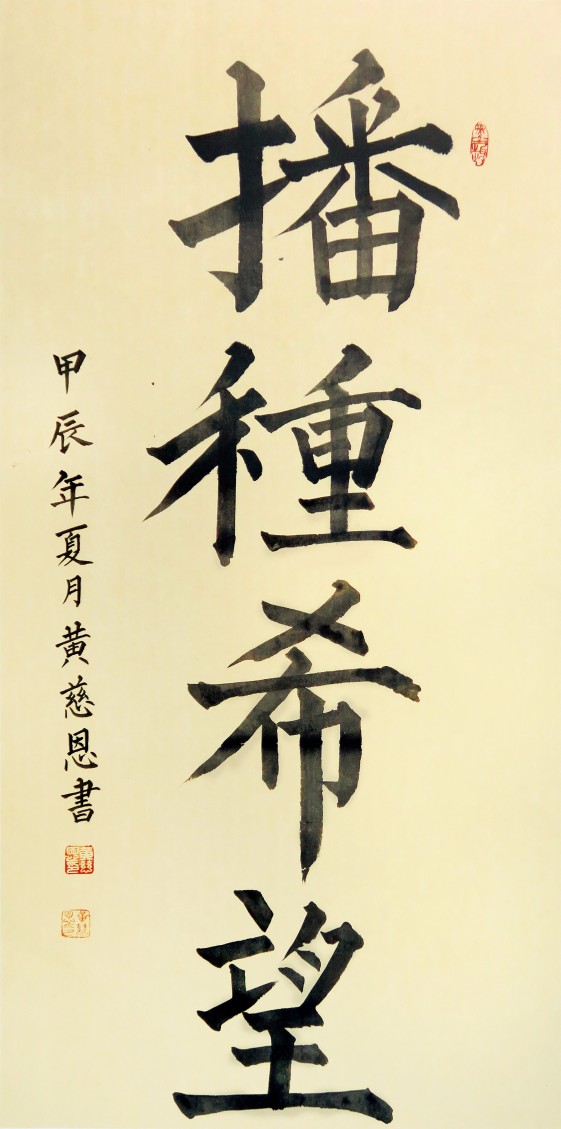 播種希望
甲辰年夏月黃慈恩書